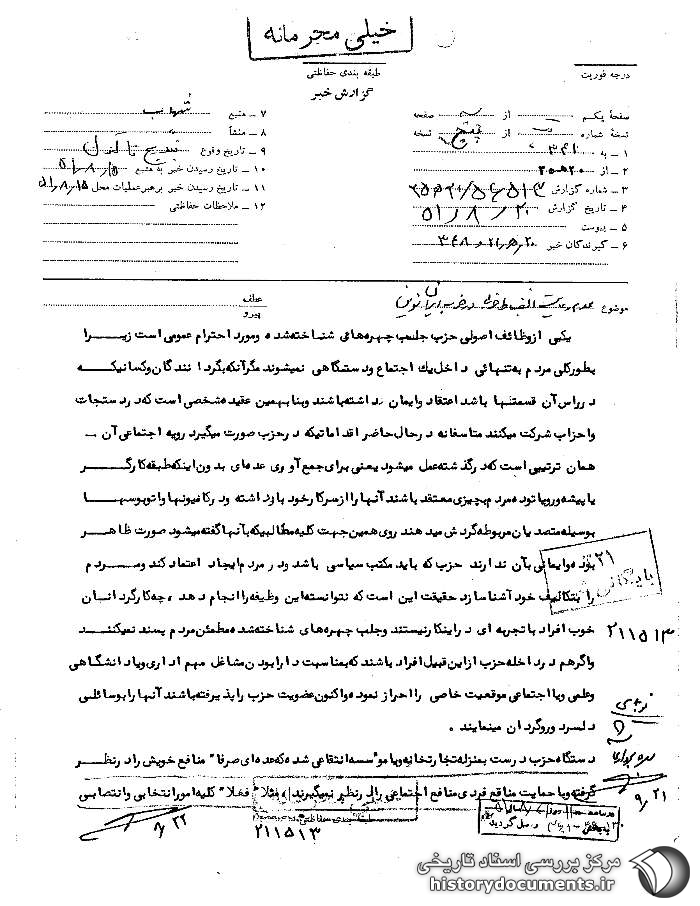 خیلی محرمانه
طبقه بندی حفاظتی
درجه فوریت
گزارش خبر
صفحهٔ یکم از صفحه
نسخهٔ شماره از پنج نسخه
۱ ـ به ۳۴۱
۲ ـ از ۲۰ ه ۲۰
۳ ـ شماره گزارش
۴ ـ تاریخ گزارش ۵۱/۸/۲۰
۵ ـ پیوست
۶ ـ گیرندگان خبر
۷ ـ منبع
۸ ـ منشأ
۹ ـ تاریخ وقوع
۱۰ ـ تاریخ رسیدن خبر به منبع
۱۱ ـ تاریخ رسیدن خبر برهبر عملیات محل ۵۱/۸/۱۵
۱۲ ـ ملاحظات حفاظتی
موضوع عدم رعایت انضباط حزبی در حزب ایران نوین
عطف
پیرو
یکی ازوظائف اصولی حزب جلب چهره‌های شناخته‌شده ومورد احترام عمومی است زیرا
بطورکلی مردم به‌تنهائی داخل یك اجتماع ودستگاهی نمیشوند مگرآنکه‌بگردانندگان‌وکسانیکه
درراس‌آن قسمتنها باشد اعتقاد وایمان داشته‌باشند وبنابهمین عقیده‌شخصی است‌که‌دردستجات
واحزاب شرکت میکنند متاسفانه درحال‌حاضر اقداماتیکه درحزب صورت میگیرد رویه اجتماعی آن ـ
همان ترتیبی است‌که‌درگذشته‌عمل میشود یعنی برای جمع‌آوری عده‌ای بدون‌اینکه‌طبقه‌کارگر
یاپیشه‌ورویاتوده‌مردم‌بچیزی معتقدباشند آنهاراازسرکارخود بازداشته ودرکامیونهاواتوبوسها
بوسیله‌متصدیان‌مربوطه‌گردش میدهند روی‌همین‌جهت کلیه‌مطالبیکه‌بآنهاگفته‌میشود صورت ظاهر
بوده‌وایمانی بآن ندارند حزب که باید مکتب سیاسی باشد ودرمردم‌ایجاد اعتمادکند ومردم
را بتکالیف خودآشناسازد حقیقت این است که نتوانسته‌این وظیفه‌راانجام دهد ، چه‌کارگردانان
خوب افراد باتجربه ای دراینکارنیستند وجلب چهره‌های شناخته‌شده‌مطمئن‌مردم پسند نمیکنند
واگرهم درداخله‌حزب ازاین‌قبیل‌افراد باشندکه‌بمناسبت دارابودن‌مشاغل مهم اداری‌ویادانشگاهی
وعلمی ویااجتماعی موقعیت خاصی رااحراز نموده‌واکنون‌عضویت حزب راپذیرفته‌باشند آنهارابوسائلی
دلسرد ورویگردان مینمایند ۰
دستگاه‌حزب درست بمنزله‌تجارتخانه‌ویاموسسه‌انتفاعی شده‌که‌عده‌ای صرفا" منافع خویش رادرنظر
گرفته‌ویاحمایت منافع فردی‌منافع اجتماعی رادرنظرنمیگیرند ، مثلا" فعلا" کلیه‌امورانتخابی‌وانتصابی
۲۱
بایگانی
۲۱۱۵۱۳
۹/۲۱
۹/۲۲
۲۱۱۵۱۳
طبقه‌بندی حفاظتی
مرکز بررسی اسناد تاریخی
historydocuments.ir